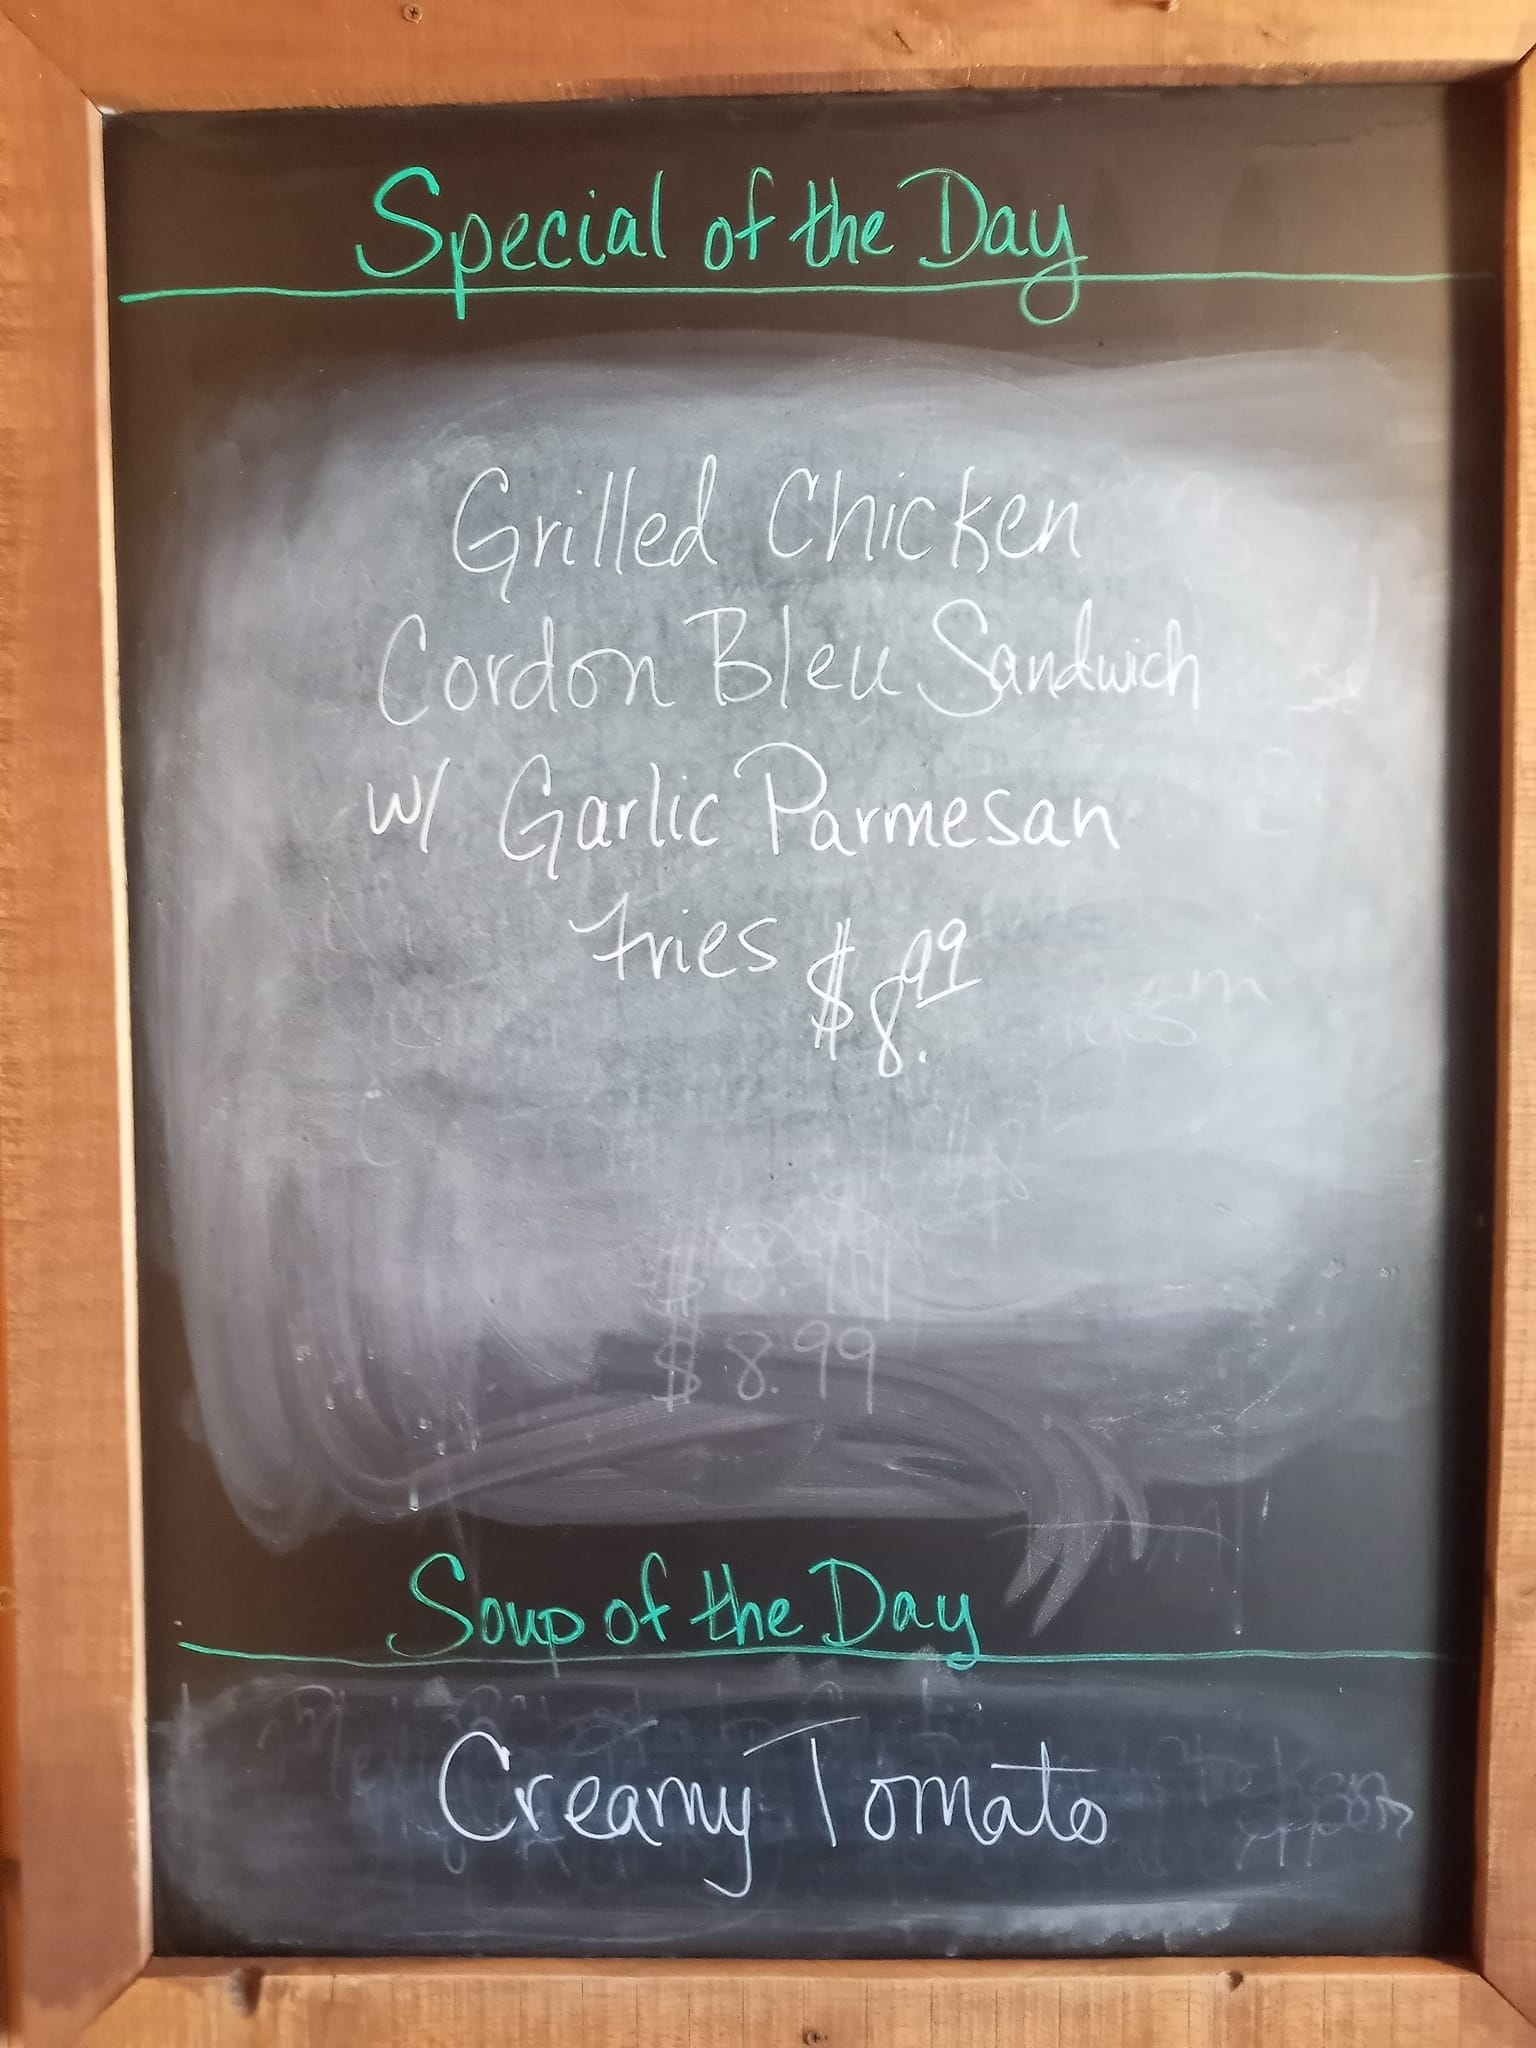 Special of the Day
Grilled Chicken
Cordon Bleu Sandwich
w/ Garlic Parmesan
Fries $8.99
$8.99
$8.99
Soup of the Day
Creamy Tomato